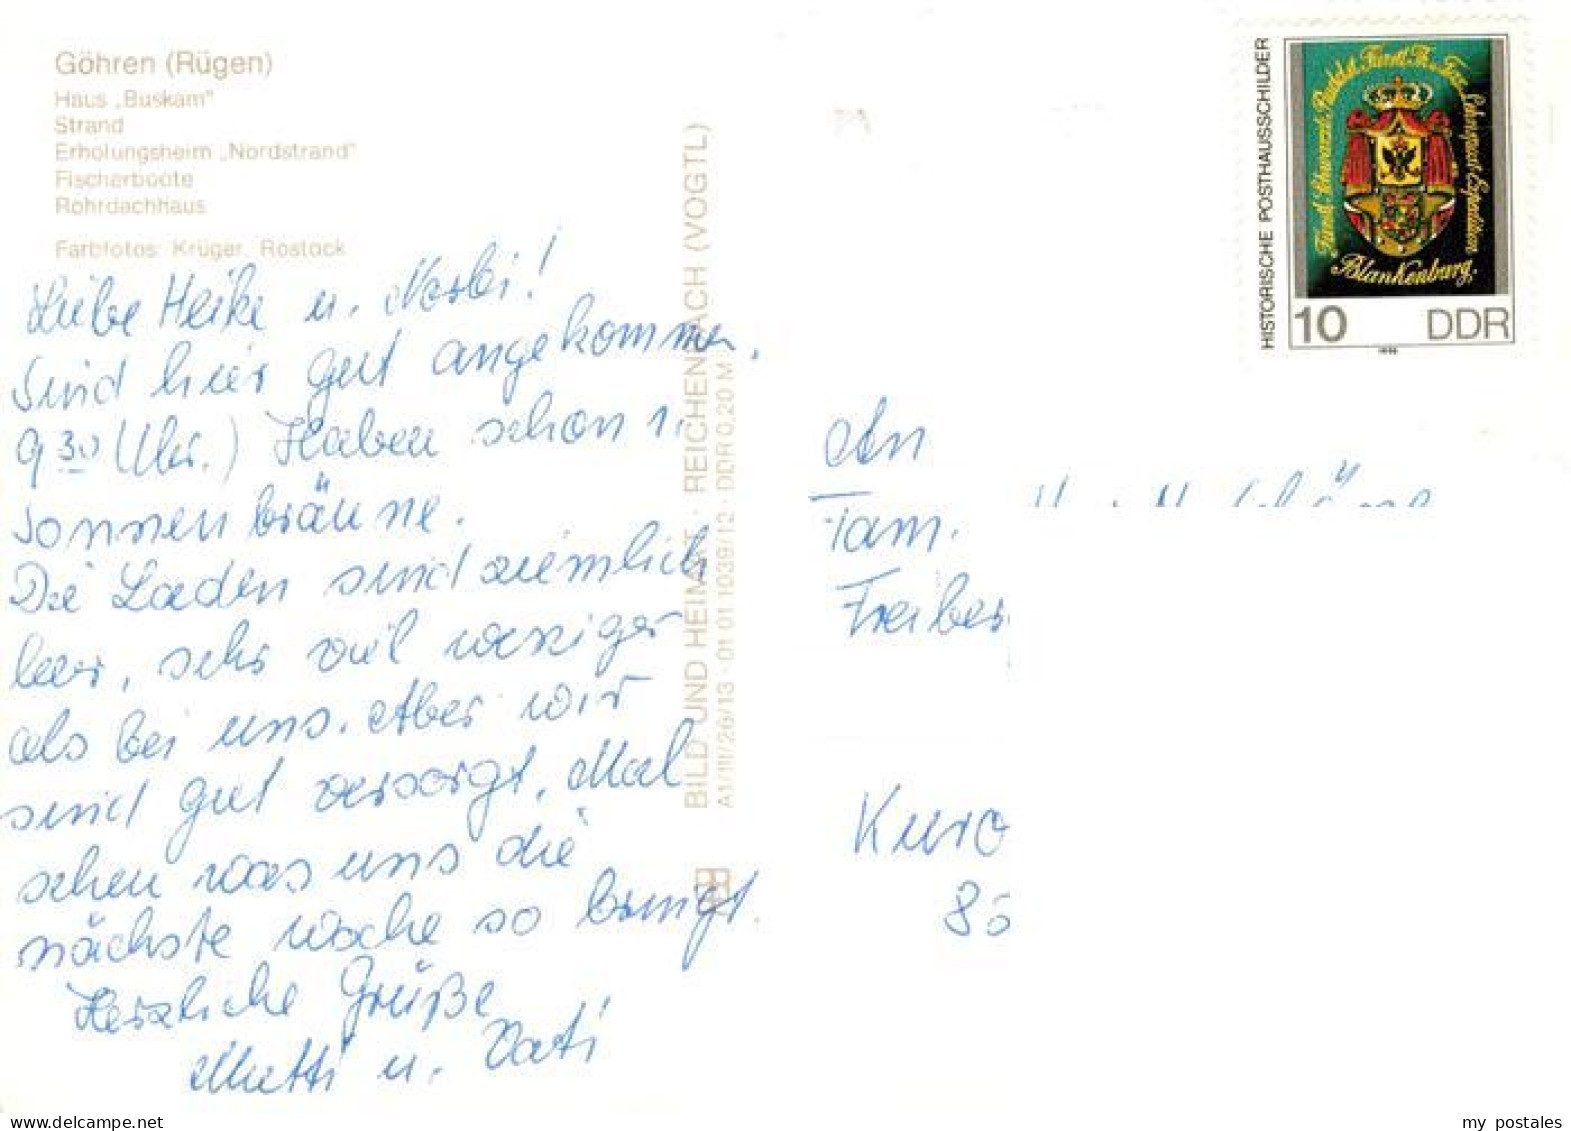 Göhren (Rügen)
Haus „Buskam"
Strand
Erholungsheim „Nordstrand"
Fischerboote
Rohrdachhaus
Farbfotos: Krüger, Rostock
Liebe Heike u. Norbi!
Sind hier gut angekommen.
9 30 Uhr.) Haben schon 1.
Sonnenbräune.
Die Läden sind ziemlich
leer, sehr viel weniger
als bei uns. Aber wir
sind gut versorgt. Mal
sehen was uns die
nächste Woche so bringt.
Herzliche Grüße
Mutti u. Vati
BILD UND HEIMAT · REICHENBACH (VOGTL)
A1/III/26/13 · 01 01 1039/12 · DDR 0,20 M
HISTORISCHE POSTHAUSSCHILDER
Blankenburg.
10 DDR
An
Fam.
Freiber
Kuro
my postales